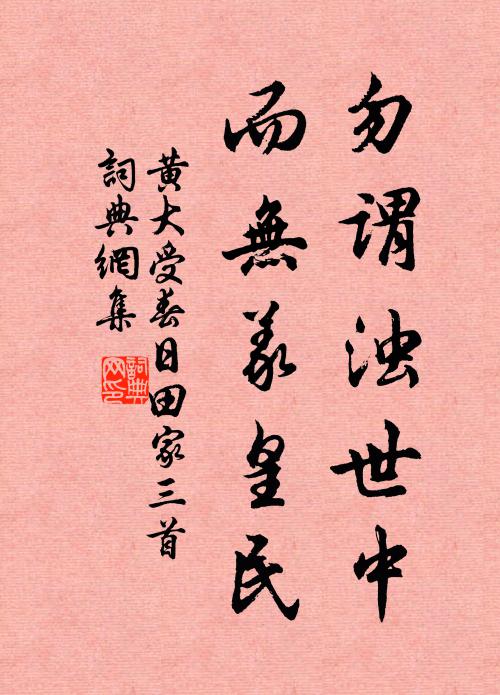 勿謂浊世中
而無羲皇民
黃大受春日田家三首
詞典網集
詞典网印